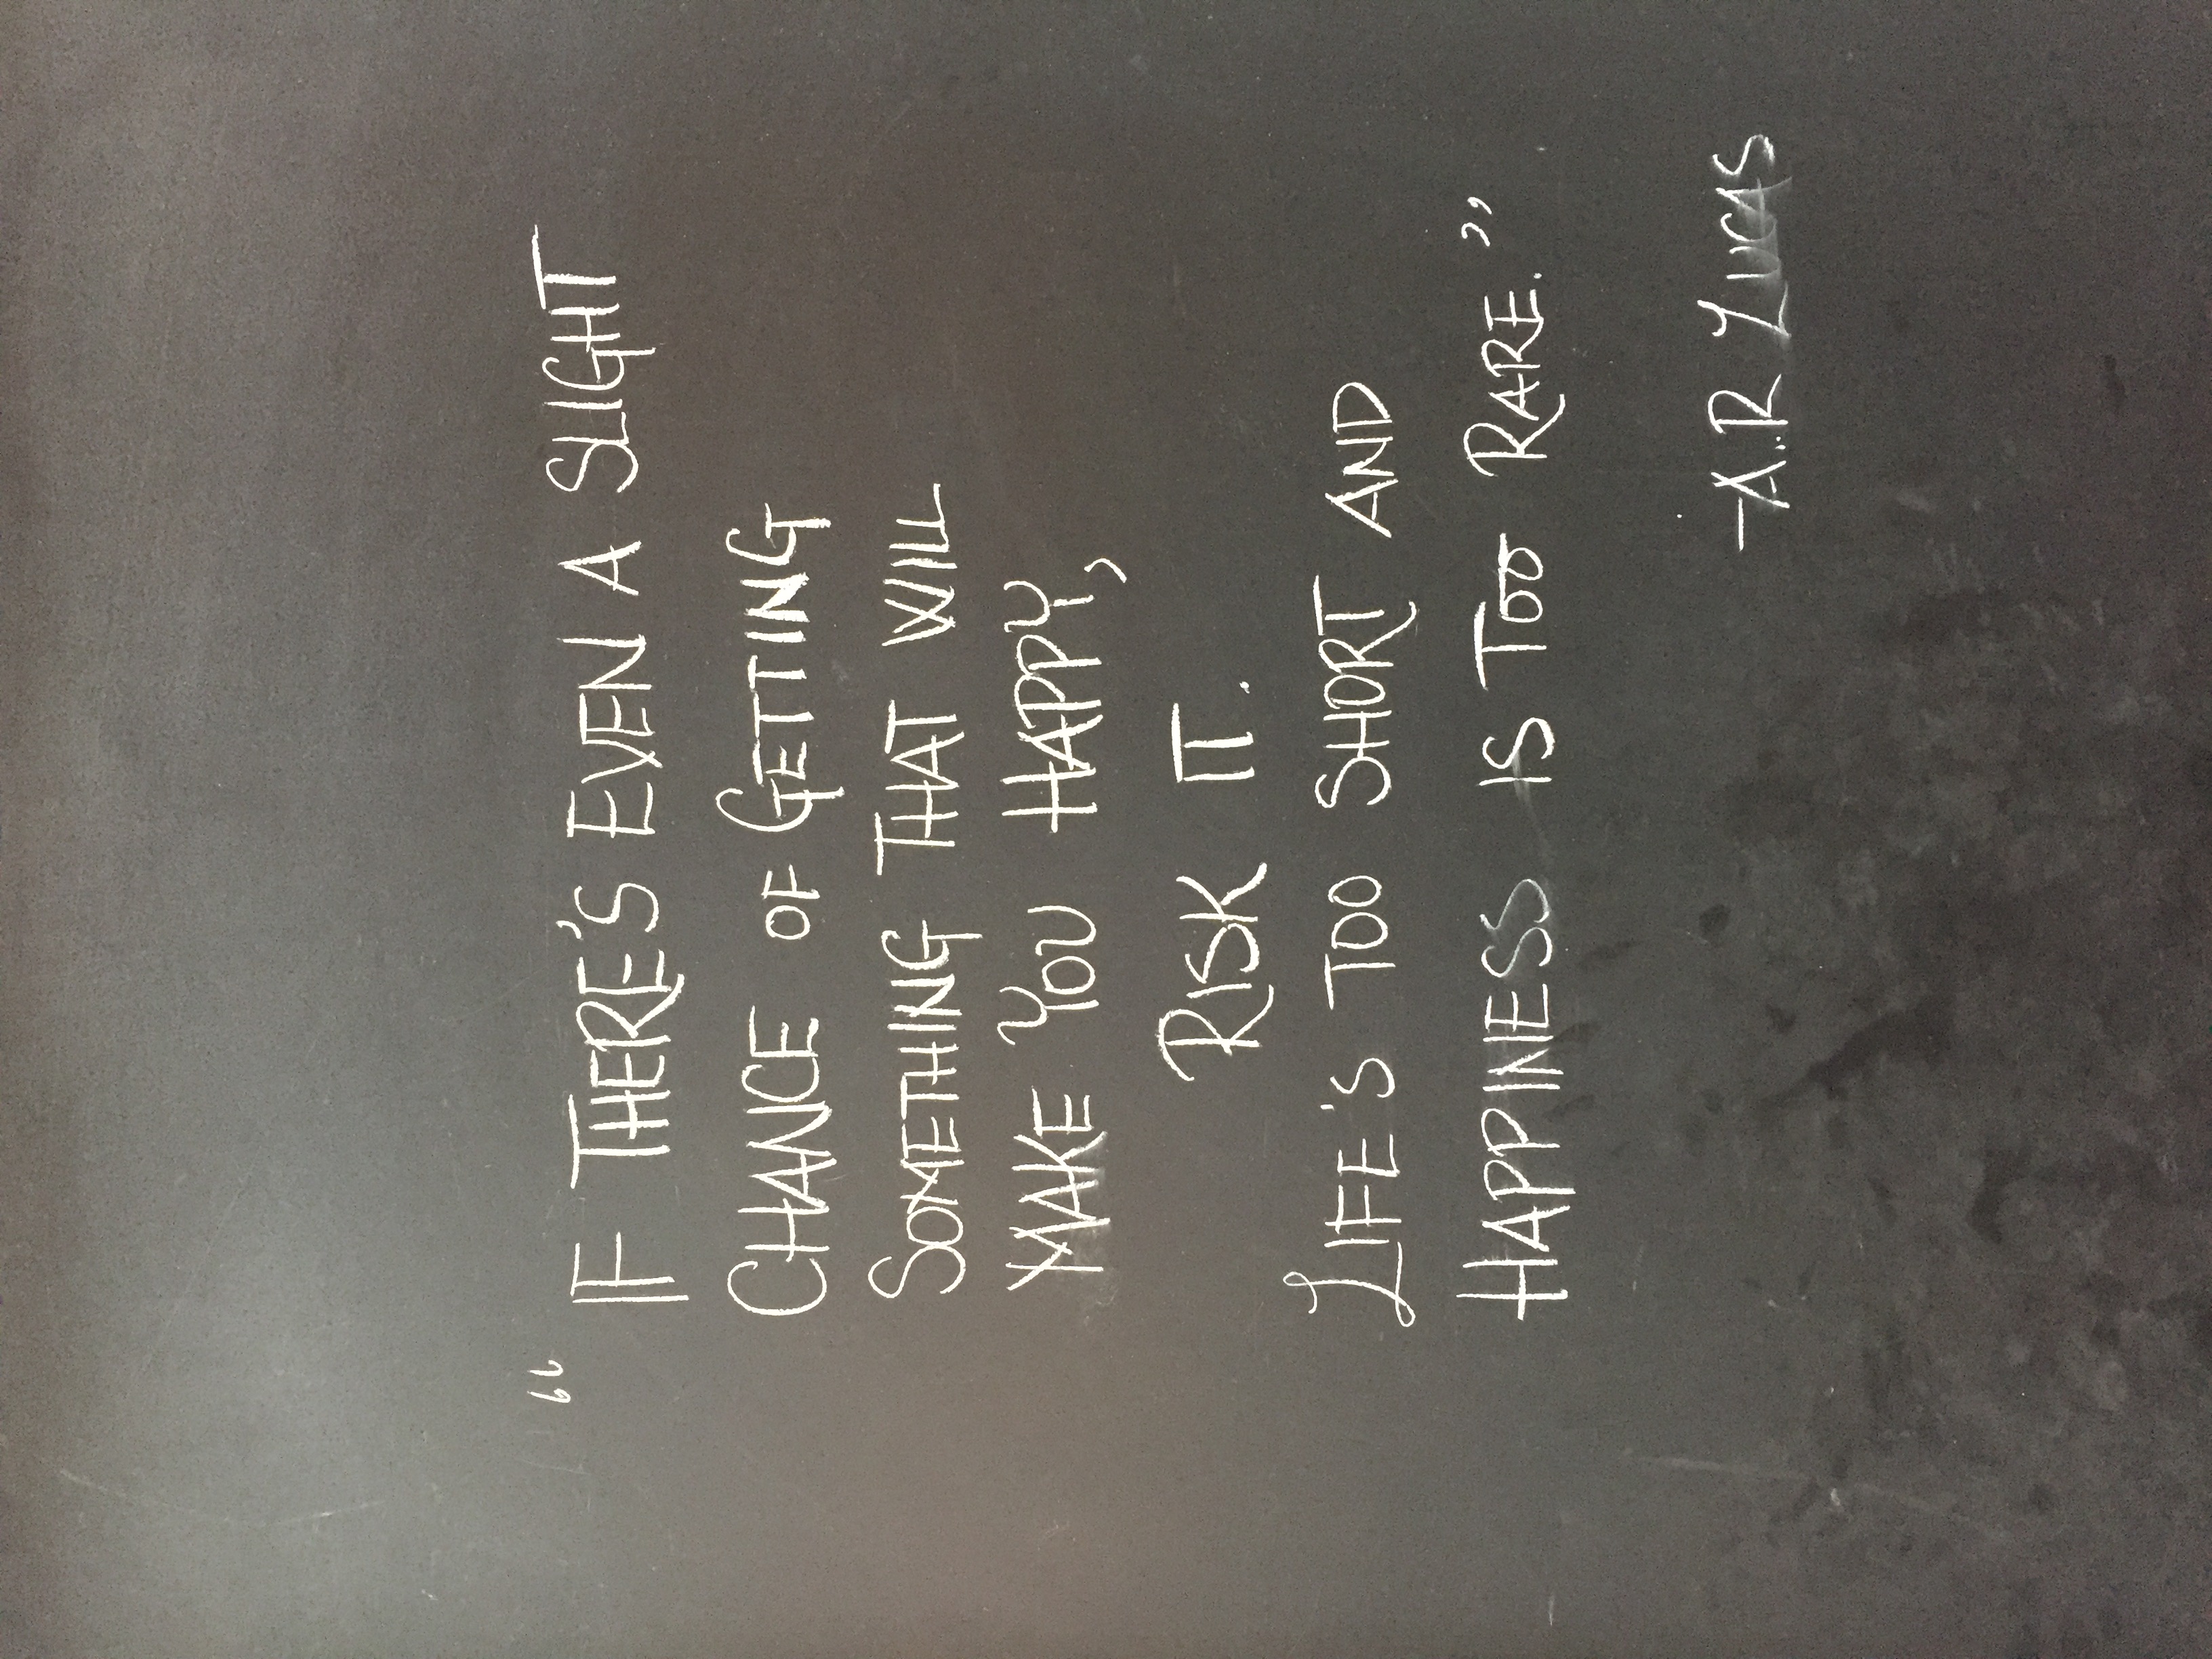 "IF THERE'S EVEN A SLIGHT
CHANCE OF GETTING
SOMETHING THAT WILL
MAKE YOU HAPPY,
RISK IT.
LIFE'S TOO SHORT AND
HAPPINESS IS TOO RARE."
-A.R LUCAS